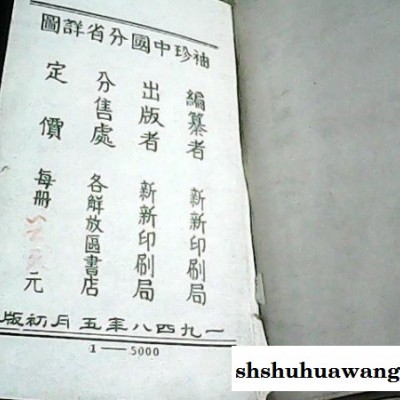 袖珍中國分省詳圖
編纂者 新新印刷局
出版者 新新印刷局
分售處 各解放區書店
定價 每册 元
一九四八年五月初版
1—5000
shshuhuawang